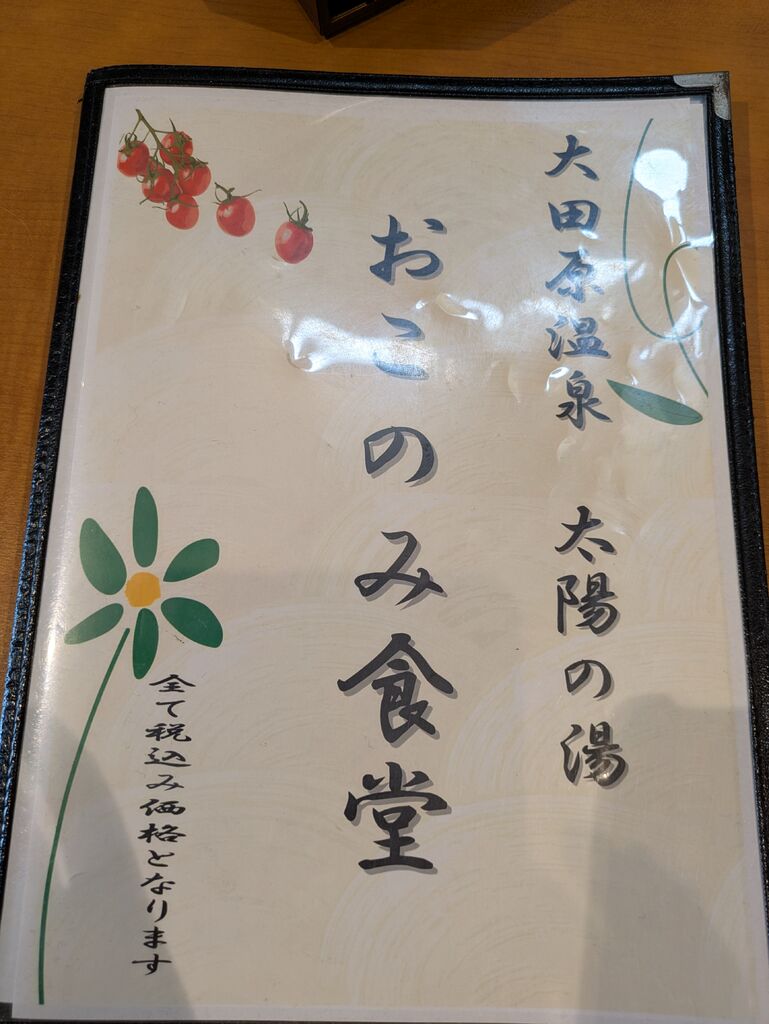 大田原温泉 太陽の湯
おこのみ食堂
全て税込み価格となります